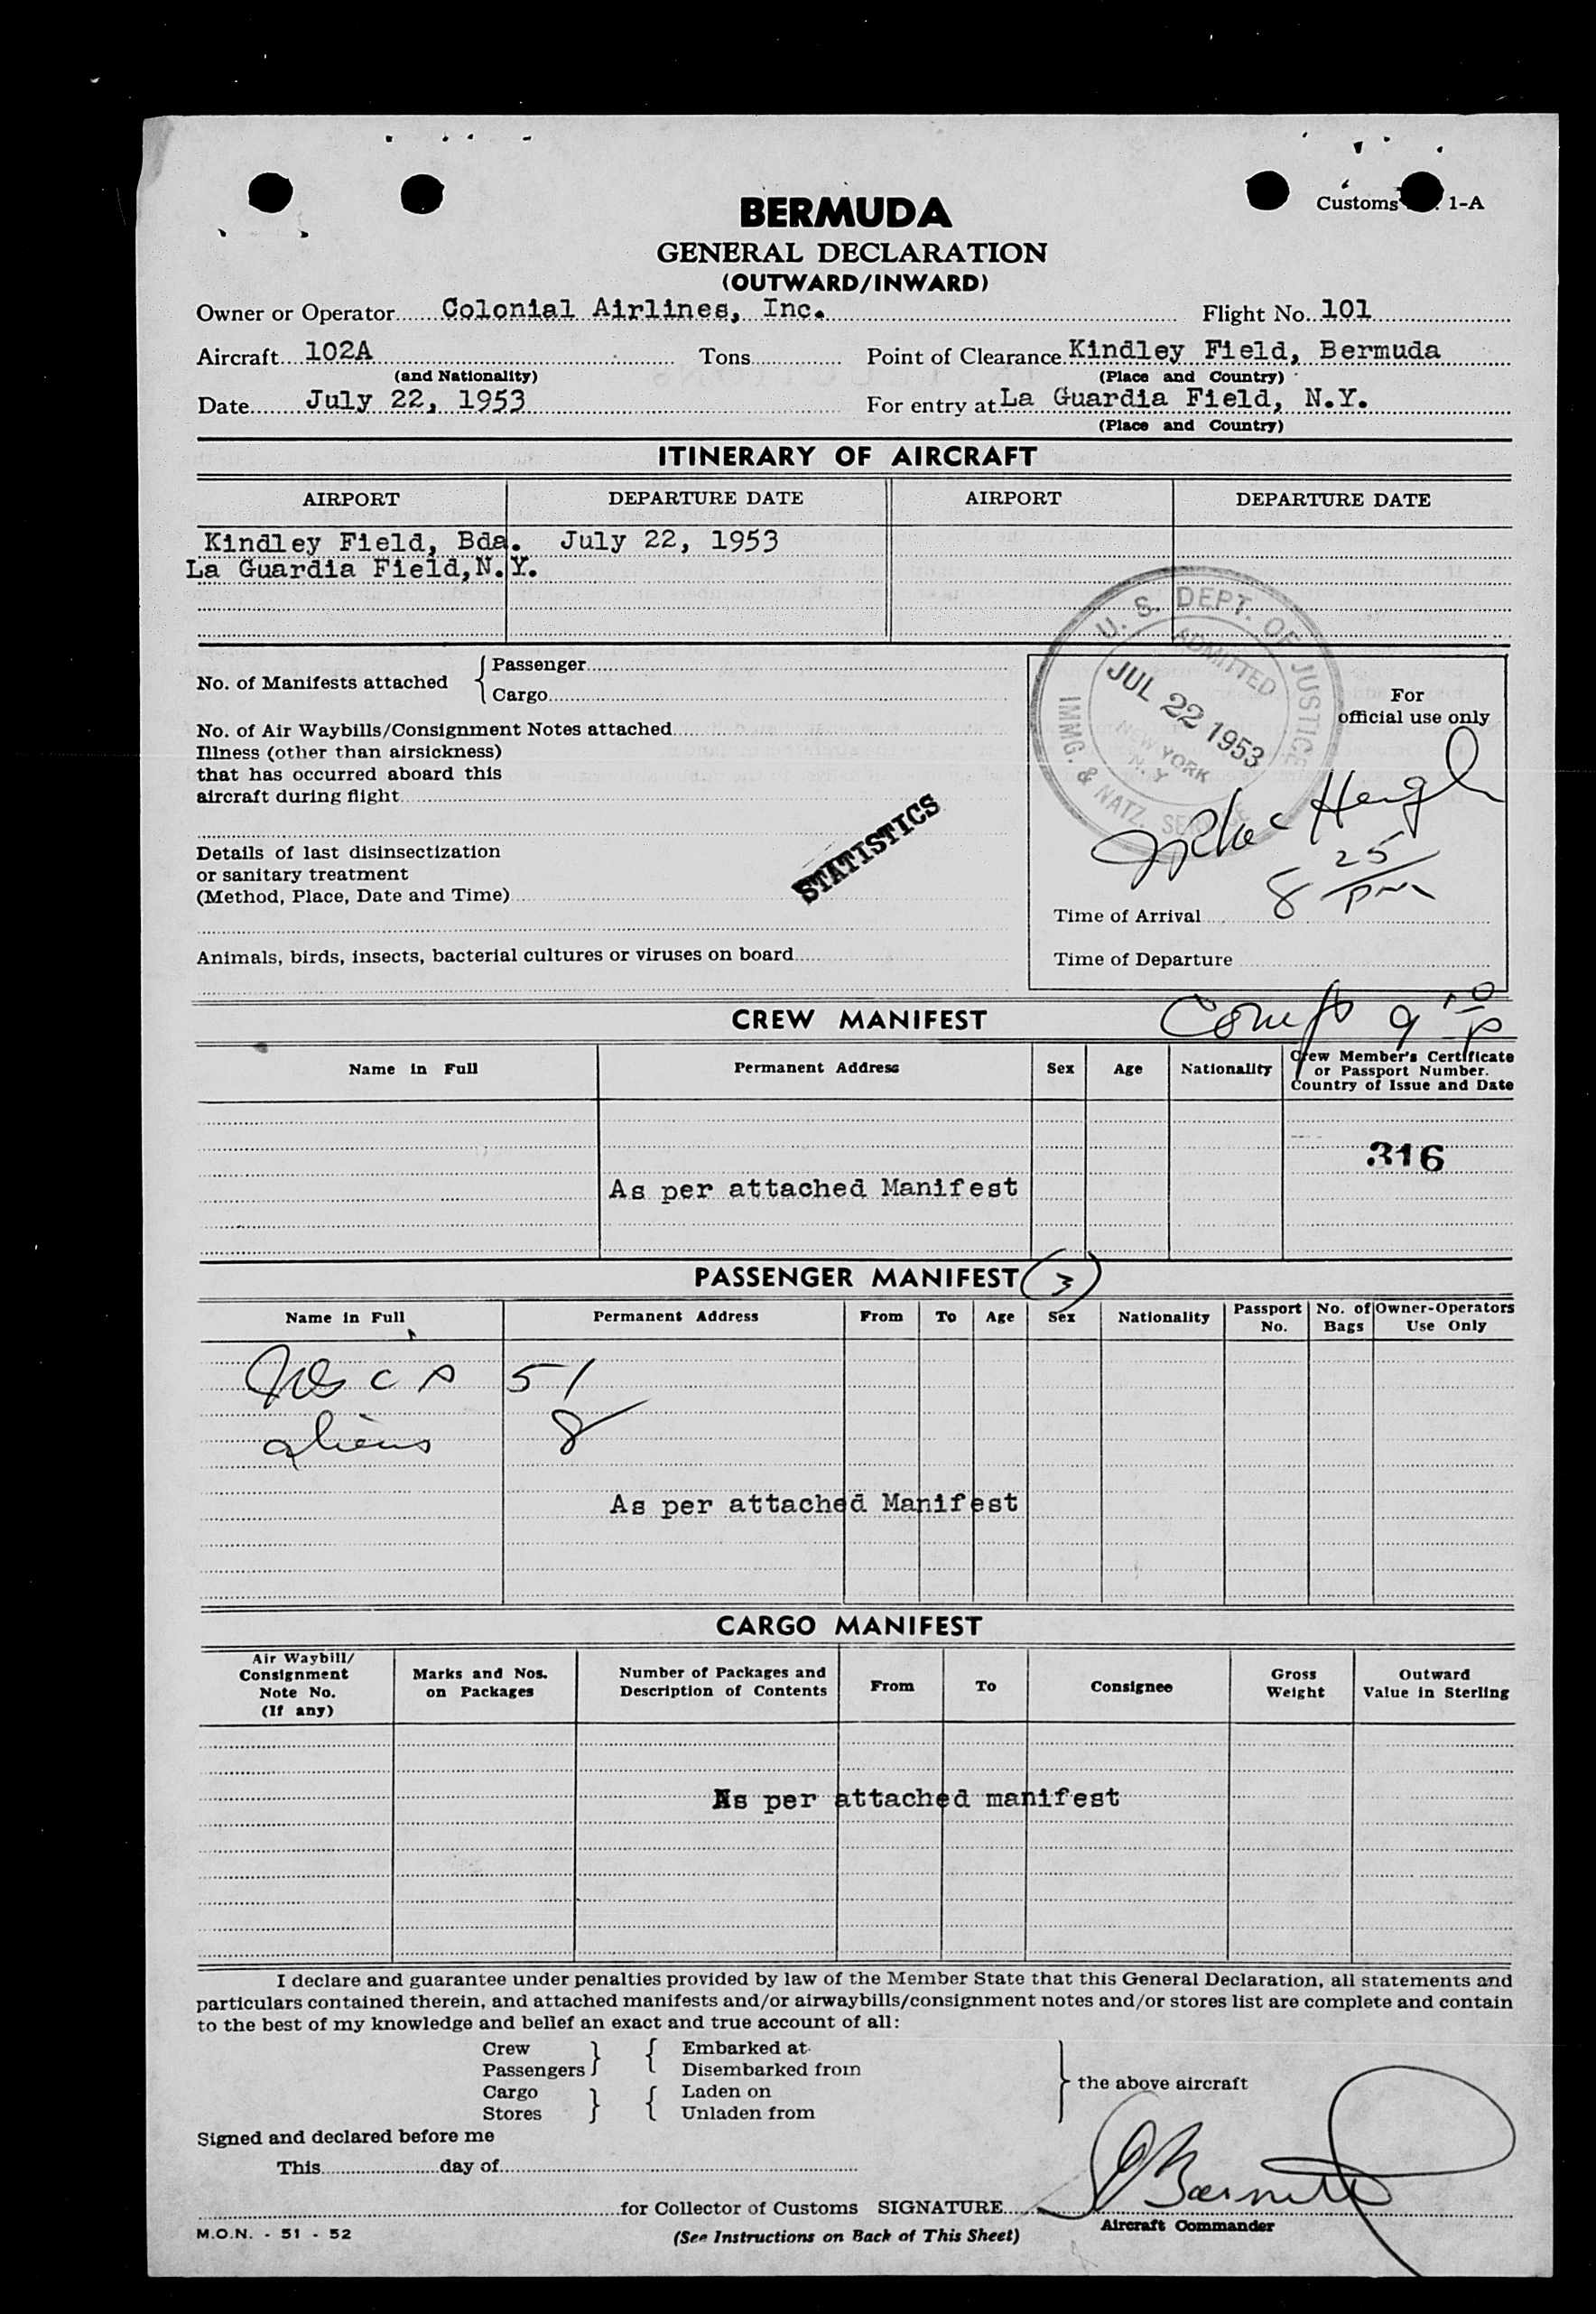 Customs 1-A
BERMUDA
GENERAL DECLARATION
(OUTWARD/INWARD)
Owner or Operator Colonial Airlines, Inc. Flight No. 101
Aircraft 102A Tons Point of Clearance Kindley Field, Bermuda
(and Nationality) (Place and Country)
Date July 22, 1953 For entry at La Guardia Field, N.Y.
(Place and Country)
ITINERARY OF AIRCRAFT
AIRPORT DEPARTURE DATE AIRPORT DEPARTURE DATE
Kindley Field, Bda. July 22, 1953
La Guardia Field, N.Y.
No. of Manifests attached { Passenger
Cargo
No. of Air Waybills/Consignment Notes attached
Illness (other than airsickness)
that has occurred aboard this
aircraft during flight
Details of last disinsectization
or sanitary treatment
(Method, Place, Date and Time)
Animals, birds, insects, bacterial cultures or viruses on board
STATISTICS
U. S. DEPT. OF JUSTICE
IMMG. & NATZ. SERVICE
ADMITTED
JUL 22 1953
NEW YORK
N. Y
For
official use only
8 25 pm
Time of Arrival
Time of Departure
CREW MANIFEST
9 10 p
Name in Full Permanent Address Sex Age Nationality Crew Member's Certificate
or Passport Number.
Country of Issue and Date
316
As per attached Manifest
PASSENGER MANIFEST 3
Name in Full Permanent Address From To Age Sex Nationality Passport No. No. of Bags Owner-Operators Use Only
51
aliens 8
As per attached Manifest
CARGO MANIFEST
Air Waybill/
Consignment
Note No.
(If any)
Marks and Nos.
on Packages
Number of Packages and
Description of Contents
From To Consignee
Gross
Weight
Outward
Value in Sterling
As per attached manifest
I declare and guarantee under penalties provided by law of the Member State that this General Declaration, all statements and
particulars contained therein, and attached manifests and/or airwaybills/consignment notes and/or stores list are complete and contain
to the best of my knowledge and belief an exact and true account of all:
Crew } { Embarked at
Passengers Disembarked from
Cargo } { Laden on
Stores Unladen from
} the above aircraft
Signed and declared before me
This day of
for Collector of Customs SIGNATURE
Aircraft Commander
M.O.N. - 51 - 52
(See Instructions on Back of This Sheet)